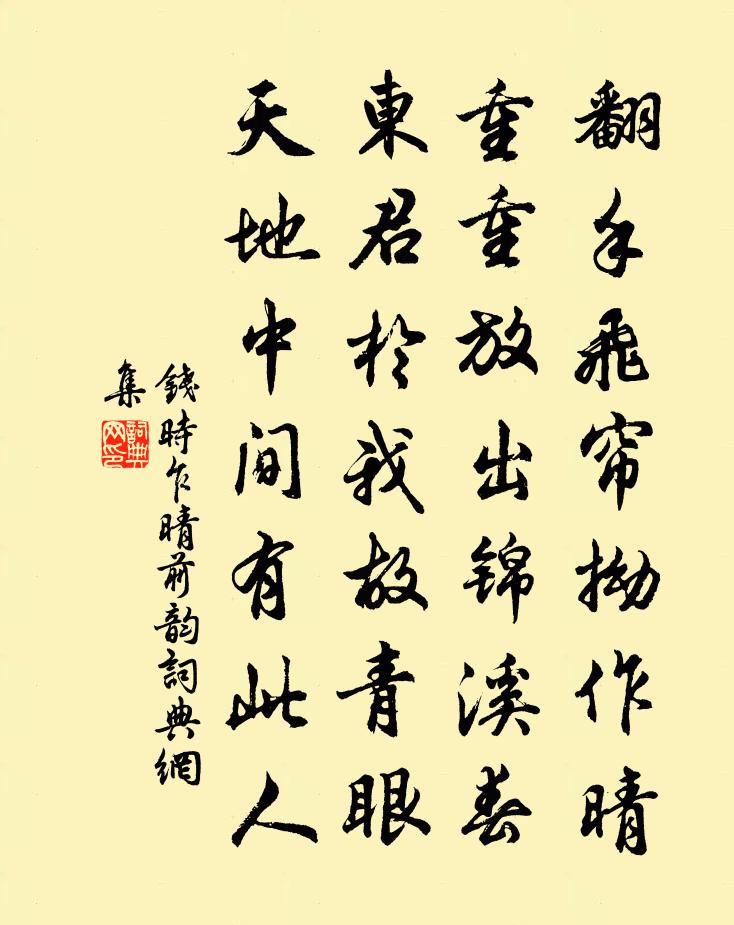 翻手飛帘拗作晴
重重放出錦溪春
東君於我故青眼
天地中間有此人
錢時乍晴前韵詞典網
集
詞典
网印